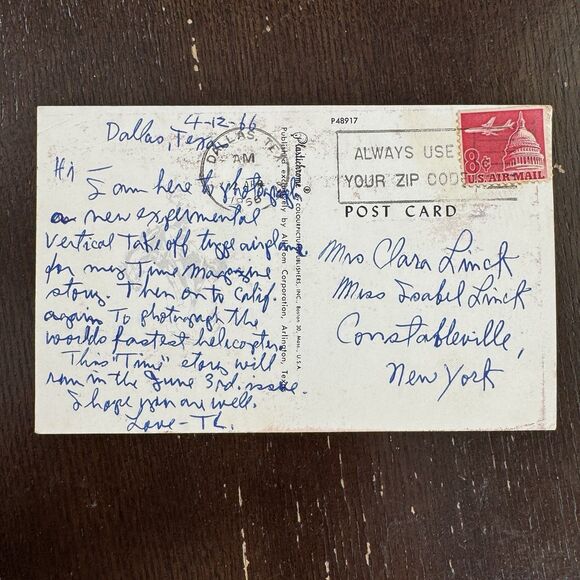 4-12-66
Dallas, Texas
Hi —
I am here to photograph
a new experimental
vertical take off type airplane
for my Time Magazine
story. Then on to Calif.
again to photograph the
worlds fastest helicopter.
This "Time" story will
run in the June 3rd. issue.
I hope you are well.
Love - TL.
Plastichrome ®
COLOURPICTURE PUBLISHERS, INC., Boston 30, Mass., U.S.A.
Published exclusively by All-Tom Corporation, Arlington, Texas
P48917
DALLAS, TEX.
AM
ALWAYS USE
YOUR ZIP CODE
8¢
U.S. AIR MAIL
POST CARD
Mrs Clara Linck
Miss Isabel Linck
Constableville,
New York